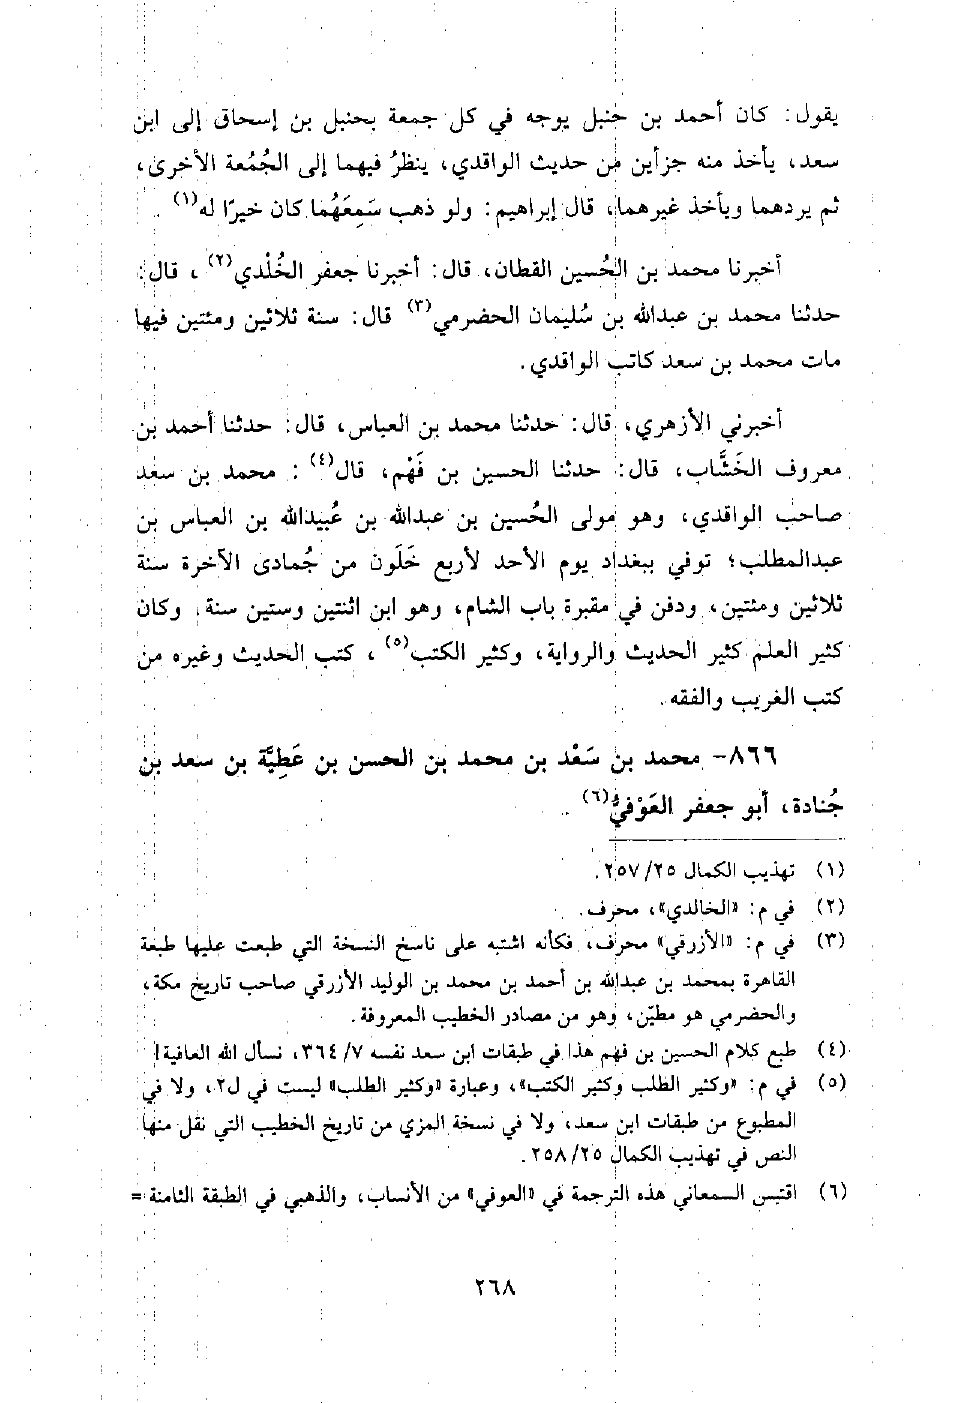 يقول: كان أحمد بن حنبل يوجه في كل جمعة بحنبل بن إسحاق إلى ابن
سعد، يأخذ منه جزأين من حديث الواقدي، ينظرُ فيهما إلى الجُمُعة الأخرى،
ثم يردهما ويأخذ غيرهما، قال إبراهيم: ولو ذهب سَمِعَهُما كان خيرًا له(١).
أخبرنا محمد بن الحُسين القطان، قال: أخبرنا جعفر الخُلْدي(٢)، قال:
حدثنا محمد بن عبدالله بن سُليمان الحضرمي(٣) قال: سنة ثلاثين ومئتين فيها
مات محمد بن سعد كاتب الواقدي.
أخبرني الأزهري، قال: حدثنا محمد بن العباس، قال: حدثنا أحمد بن
معروف الخَشَّاب، قال: حدثنا الحسين بن فَهْم، قال(٤): محمد بن سعد
صاحب الواقدي، وهو مولى الحُسين بن عبدالله بن عُبيدالله بن العباس بن
عبدالمطلب؛ توفي ببغداد يوم الأحد لأربع خَلَون من جُمادى الآخرة سنة
ثلاثين ومئتين، ودفن في مقبرة باب الشام، وهو ابن اثنتين وستين سنة. وكان
كثير العلم كثير الحديث والرواية، وكثير الكتب(٥)، كتب الحديث وغيره من
كتب الغريب والفقه.
٨٦٦- محمد بن سَعْد بن محمد بن الحسن بن عَطِيَّة بن سعد بن
جُنادة، أبو جعفر العَوْفيُّ(٦).
(١) تهذيب الكمال ٢٥/ ٢٥٧.
(٢) في م: «الخالدي»، محرف.
(٣) في م: «الأزرقي» محرف، فكأنه اشتبه على ناسخ النسخة التي طبعت عليها طبعة
القاهرة بمحمد بن عبدالله بن أحمد بن محمد بن الوليد الأزرقي صاحب تاريخ مكة،
والحضرمي هو مطيّن، وهو من مصادر الخطيب المعروفة.
(٤) طبع كلام الحسين بن فهم هذا في طبقات ابن سعد نفسه ٧/ ٣٦٤، نسأل الله العافية!
(٥) في م: «وكثير الطلب وكثير الكتب»، وعبارة «وكثير الطلب» ليست في ل٢، ولا في
المطبوع من طبقات ابن سعد، ولا في نسخة المزي من تاريخ الخطيب التي نقل منها
النص في تهذيب الكمال ٢٥/ ٢٥٨.
(٦) اقتبس السمعاني هذه الترجمة في «العوفي» من الأنساب، والذهبي في الطبقة الثامنة =
٢٦٨